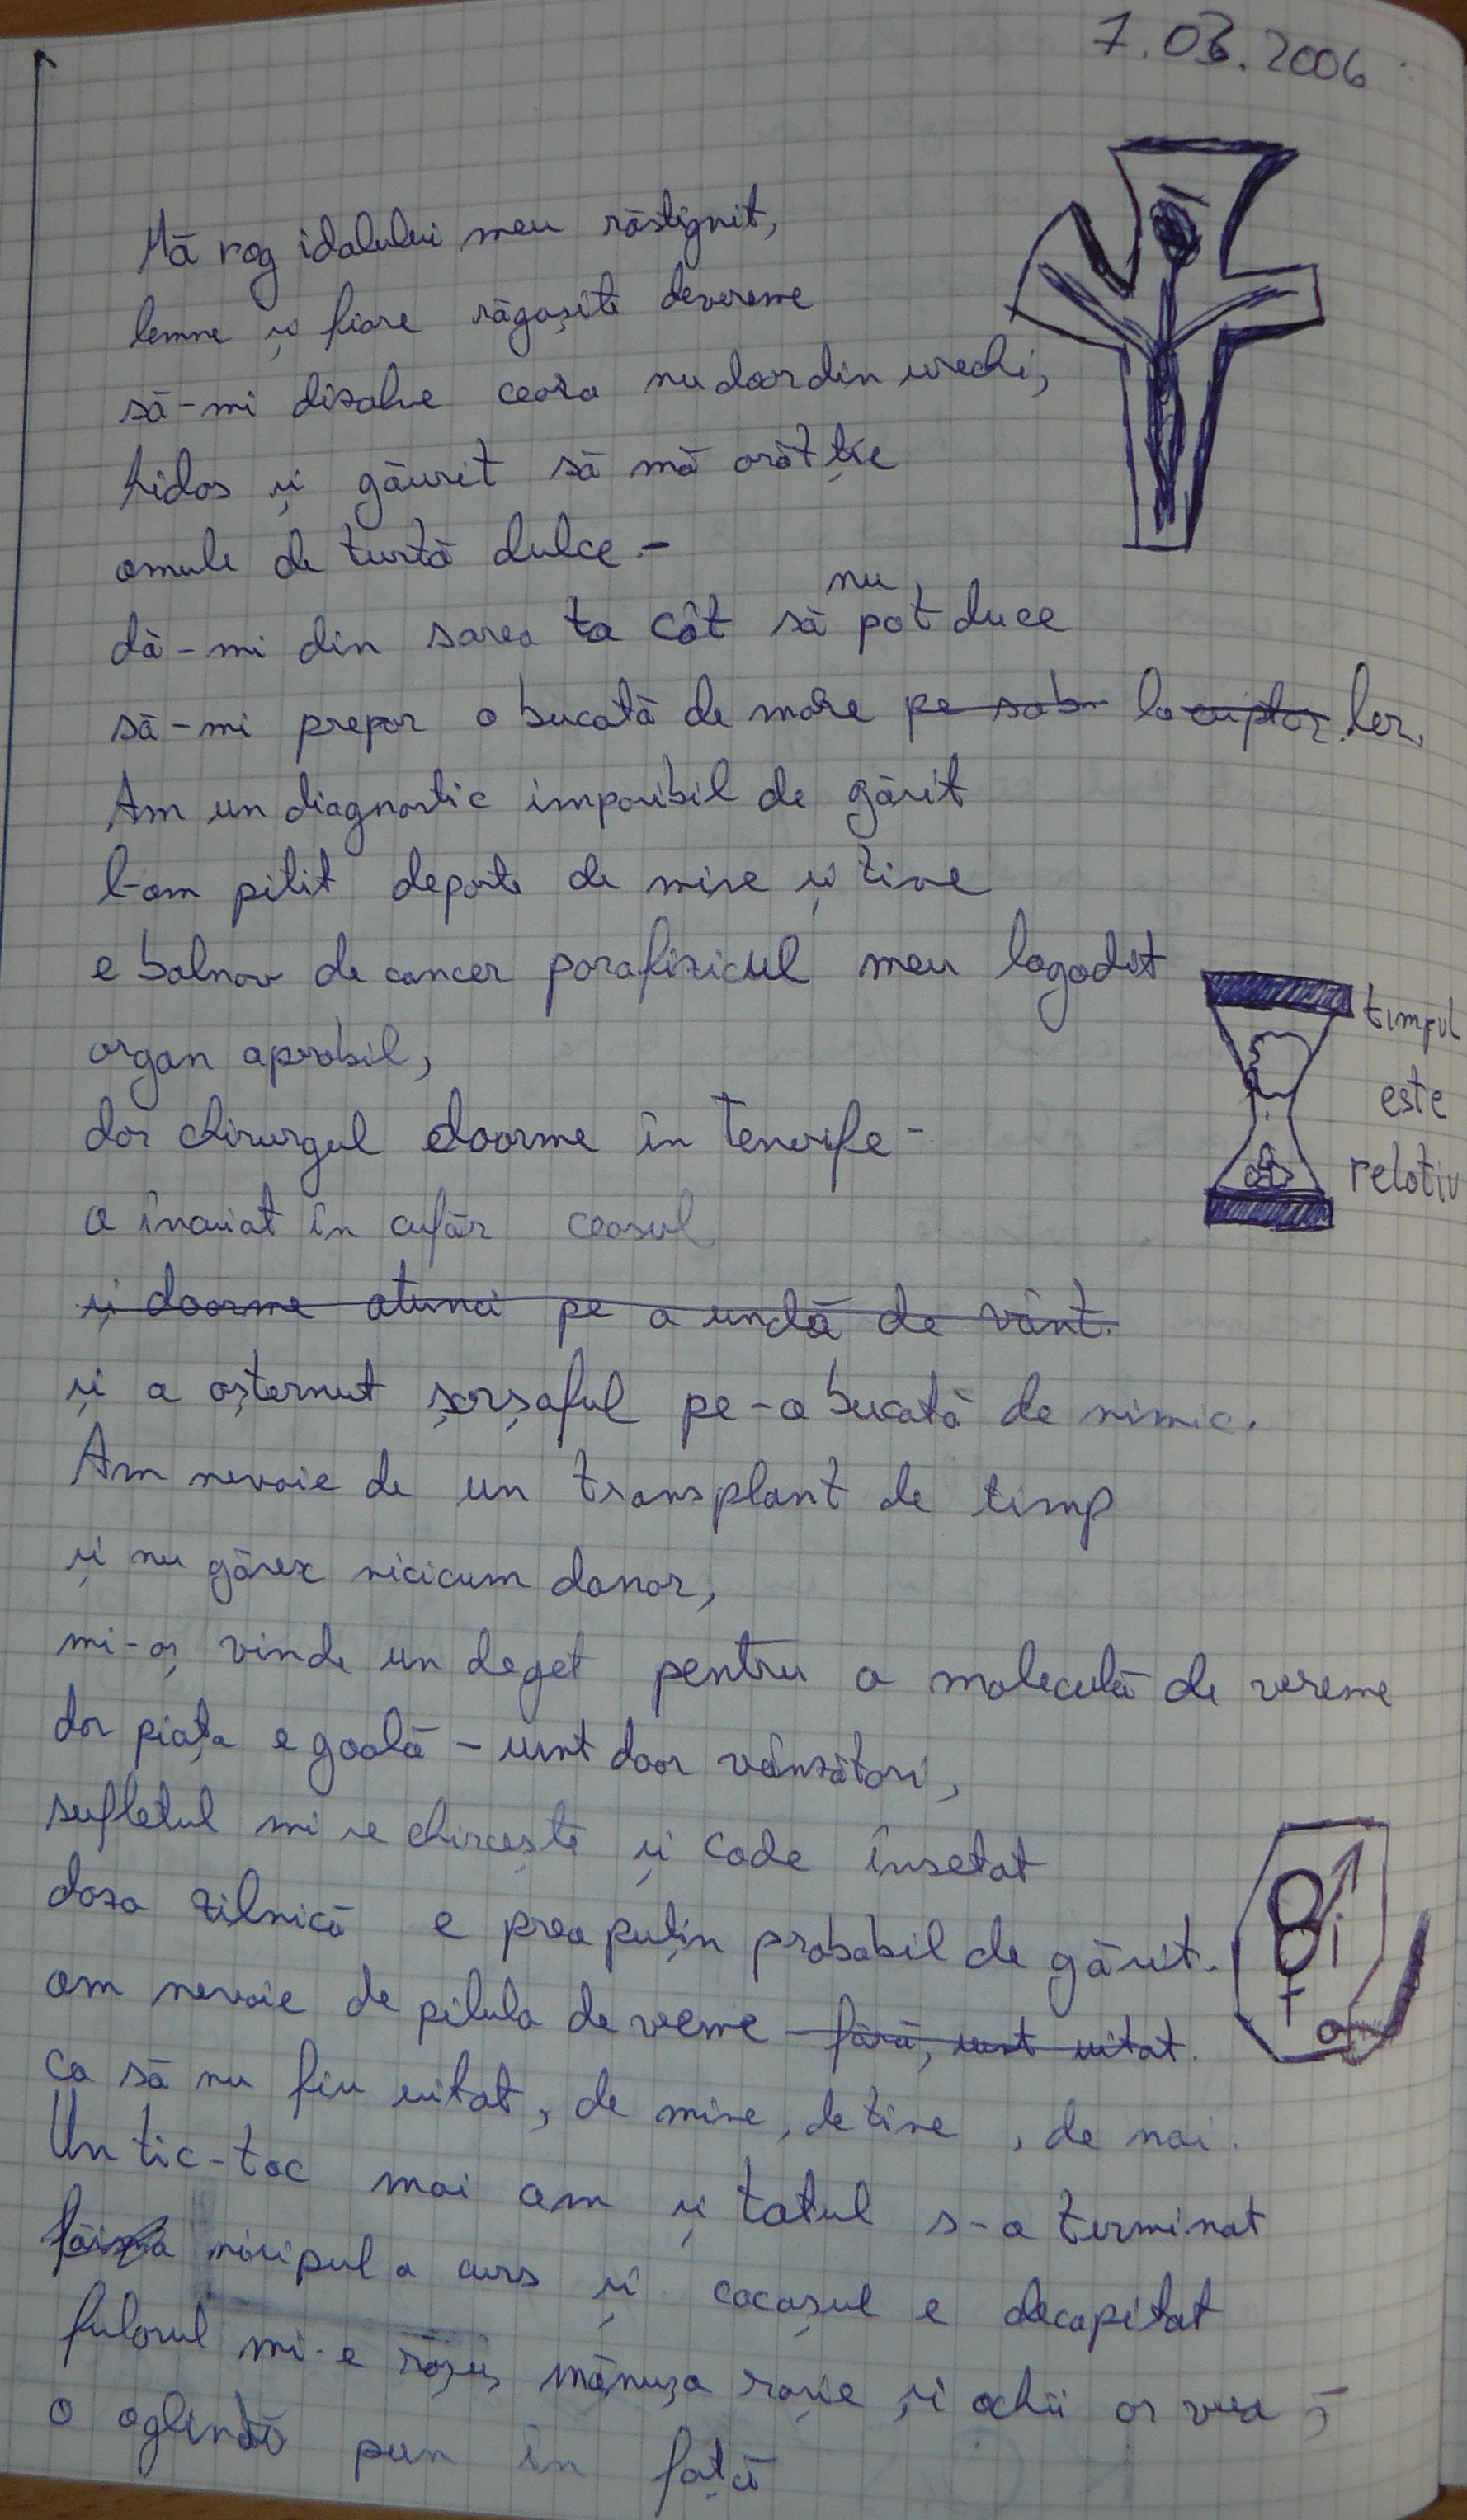 7.03.2006
Mă rog idolului meu răstignit,
lemne și fiare răgușite devreme
să-mi dizolve ceara nu doar din urechi,
hidos și găurit să mă arăt ție
omule de turtă dulce -
dă-mi din sarea ta cât să nu pot duce
să-mi prepar o bucată de mare pe sob la cuptor ler.
Am un diagnostic imposibil de găsit
l-am pitit departe de mine și tine
e bolnav de cancer parafizicul meu logodit
organ aprobil,
dar chirurgul doarme în Tenerife -
a încuiat în cufăr ceasul
și doarme atunci pe o undă de vânt.
și a așternut șarșaful pe-o bucată de nimic.
Am nevoie de un transplant de timp
și nu găsesc nicicum donor,
mi-aș vinde un deget pentru o moleculă de vreme
dar piața e goală - sunt doar vânzători,
sufletul mi se chircește și cade însetat
doza zilnică e prea puțin probabil de găsit.
am nevoie de pilula de vreme fără, sunt uitat.
ca să nu fiu uitat, de mine, de tine, de noi.
Un tic-tac mai am și totul s-a terminat
nisipul a curs și cocoșul e decapitat
fularul mi-e roșu, mănușa roșie și ochii or vrea;
o oglindă pun în față
timpul
este
relativ